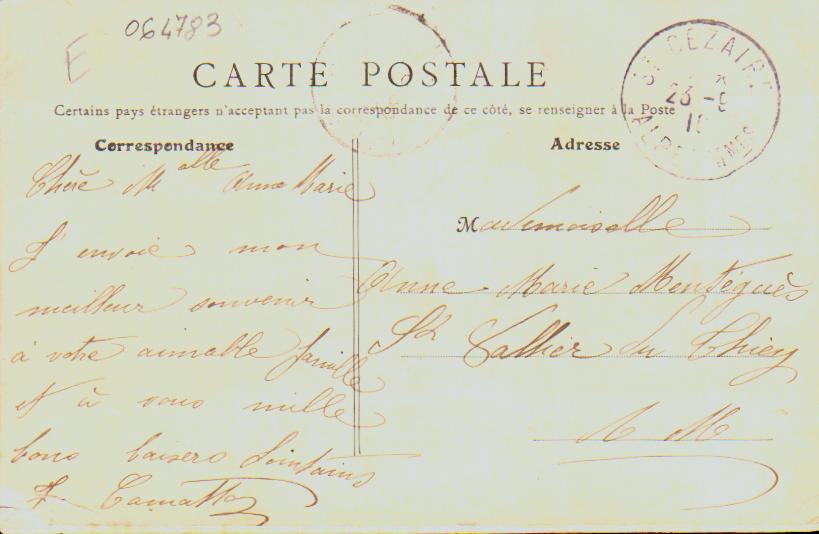 064783
E
CARTE POSTALE
Certains pays étrangers n'acceptant pas la correspondance de ce côté, se renseigner à la Poste
Correspondance
Chère Melle Anne Marie
J'envoie mon
meilleur souvenir
à votre aimable famille
et à vous mille
bons baisers lointains
Adresse
Mademoiselle
Anne Marie Montégués
St Vallier du Thiey
A M
ST CEZAIRE
23 -9
ALPES MMES